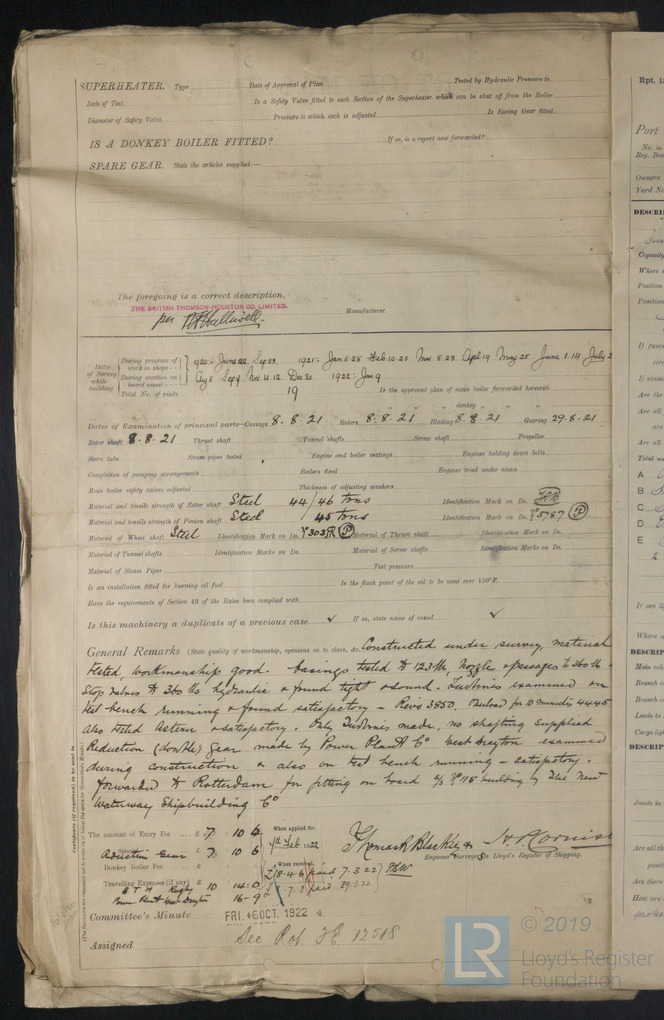 SUPERHEATER. Type Date of Approval of Plan Tested by Hydraulic Pressure to
Date of Test Is a Safety Valve fitted to each Section of the Superheater which can be shut off from the Boiler
Diameter of Safety Valve Pressure to which each is adjusted Is Easing Gear fitted
IS A DONKEY BOILER FITTED? If so, is a report now forwarded?
SPARE GEAR. State the articles supplied:—
The foregoing is a correct description,
THE BRITISH THOMSON-HOUSTON CO. LIMITED.
per Manufacturer.
Dates of Survey while building
During progress of work in shops 1920:- June 22. Sep 23. 1921:- Jan 5.25 Feb 10.25 Mar 8.23 Apl 19 May 25 June 1.14 July 2
During erection on board vessel Aug 8 Sep 4 Nov 4.12 Dec 30 1922: Jan 9
Total No. of visits 19 Is the approved plan of main boiler forwarded herewith
donkey " " "
Dates of Examination of principal parts—Casings 8.8.21 Rotors 8.8.21 Blading 8.8.21 Gearing 29.6.21
Rotor shaft 8.8.21 Thrust shaft Tunnel shafts Screw shaft Propeller
Stern tube Steam pipes tested Engine and boiler seatings Engines holding down bolts
Completion of pumping arrangements Boilers fixed Engines tried under steam
Main boiler safety valves adjusted Thickness of adjusting washers
Material and tensile strength of Rotor shaft Steel 44/46 tons Identification Mark on Do.
Material and tensile strength of Pinion shaft Steel 45 tons Identification Mark on Do. 5787 P
Material of Wheel shaft Steel Identification Mark on Do. P Material of Thrust shaft Identification Mark on Do.
Material of Tunnel shafts Identification Marks on Do. Material of Screw shafts Identification Marks on Do.
Material of Steam Pipes Test pressure
Is an installation fitted for burning oil fuel Is the flash point of the oil to be used over 150°F.
Have the requirements of Section 49 of the Rules been complied with
Is this machinery a duplicate of a previous case ✓ If so, state name of vessel ✓
General Remarks (State quality of workmanship, opinions as to class, &c. Constructed under survey, material
tested, workmanship good. Casings tested to 123 lb, Nozzles & passages to 360 lb
Stop valves to 360 lbs hydraulic & found tight & sound. Turbines examined on
test bench running & found satisfactory – Revs 3850. Overload for 10 minutes 4445
also tested Astern & satisfactory. Only Turbines made, no shafting supplied
Reduction (double) Gear made by Power Plant Co West Drayton examined
during construction & also on test bench running – satisfactory.
forwarded to Rotterdam for fitting on board No 118 building by The New
Waterway Shipbuilding Co
The amount of Entry Fee ... £ 7 10 6 When applied for,
Reduction Gear £ 7 10 6 4th Feb 1922
Donkey Boiler Fee ... £ When received,
Travelling Expenses (if any) £ 10 14:0 £18.4.6 paid 7.3.22
B T H Rugby
Power Plant West Drayton 16-9
Thomas R Blackley & H. Cornish
Engineer Surveyors to Lloyd's Register of Shipping.
Committee's Minute FRI. 6 OCT. 1922
Assigned See Rot. F.E. 12518
certificate (if required) to be sent to
Rpt. 13
Port
No. in
Reg. Boo
Owners
Yard No
DESCRI
Capacity
Where i
Position
Position
If fuses
circ
If vesse
Are the
Are all
are
Are all
Total nu
A
B
C
D
E
2
If are li
Where a
DESCRIP
Main cabl
Branch c
Branch c
Leads to
Cargo ligh
DESCRIP
Joints in
Are all th
posit
Are there
How are
© 2019
LR
Lloyd's Register
Foundation